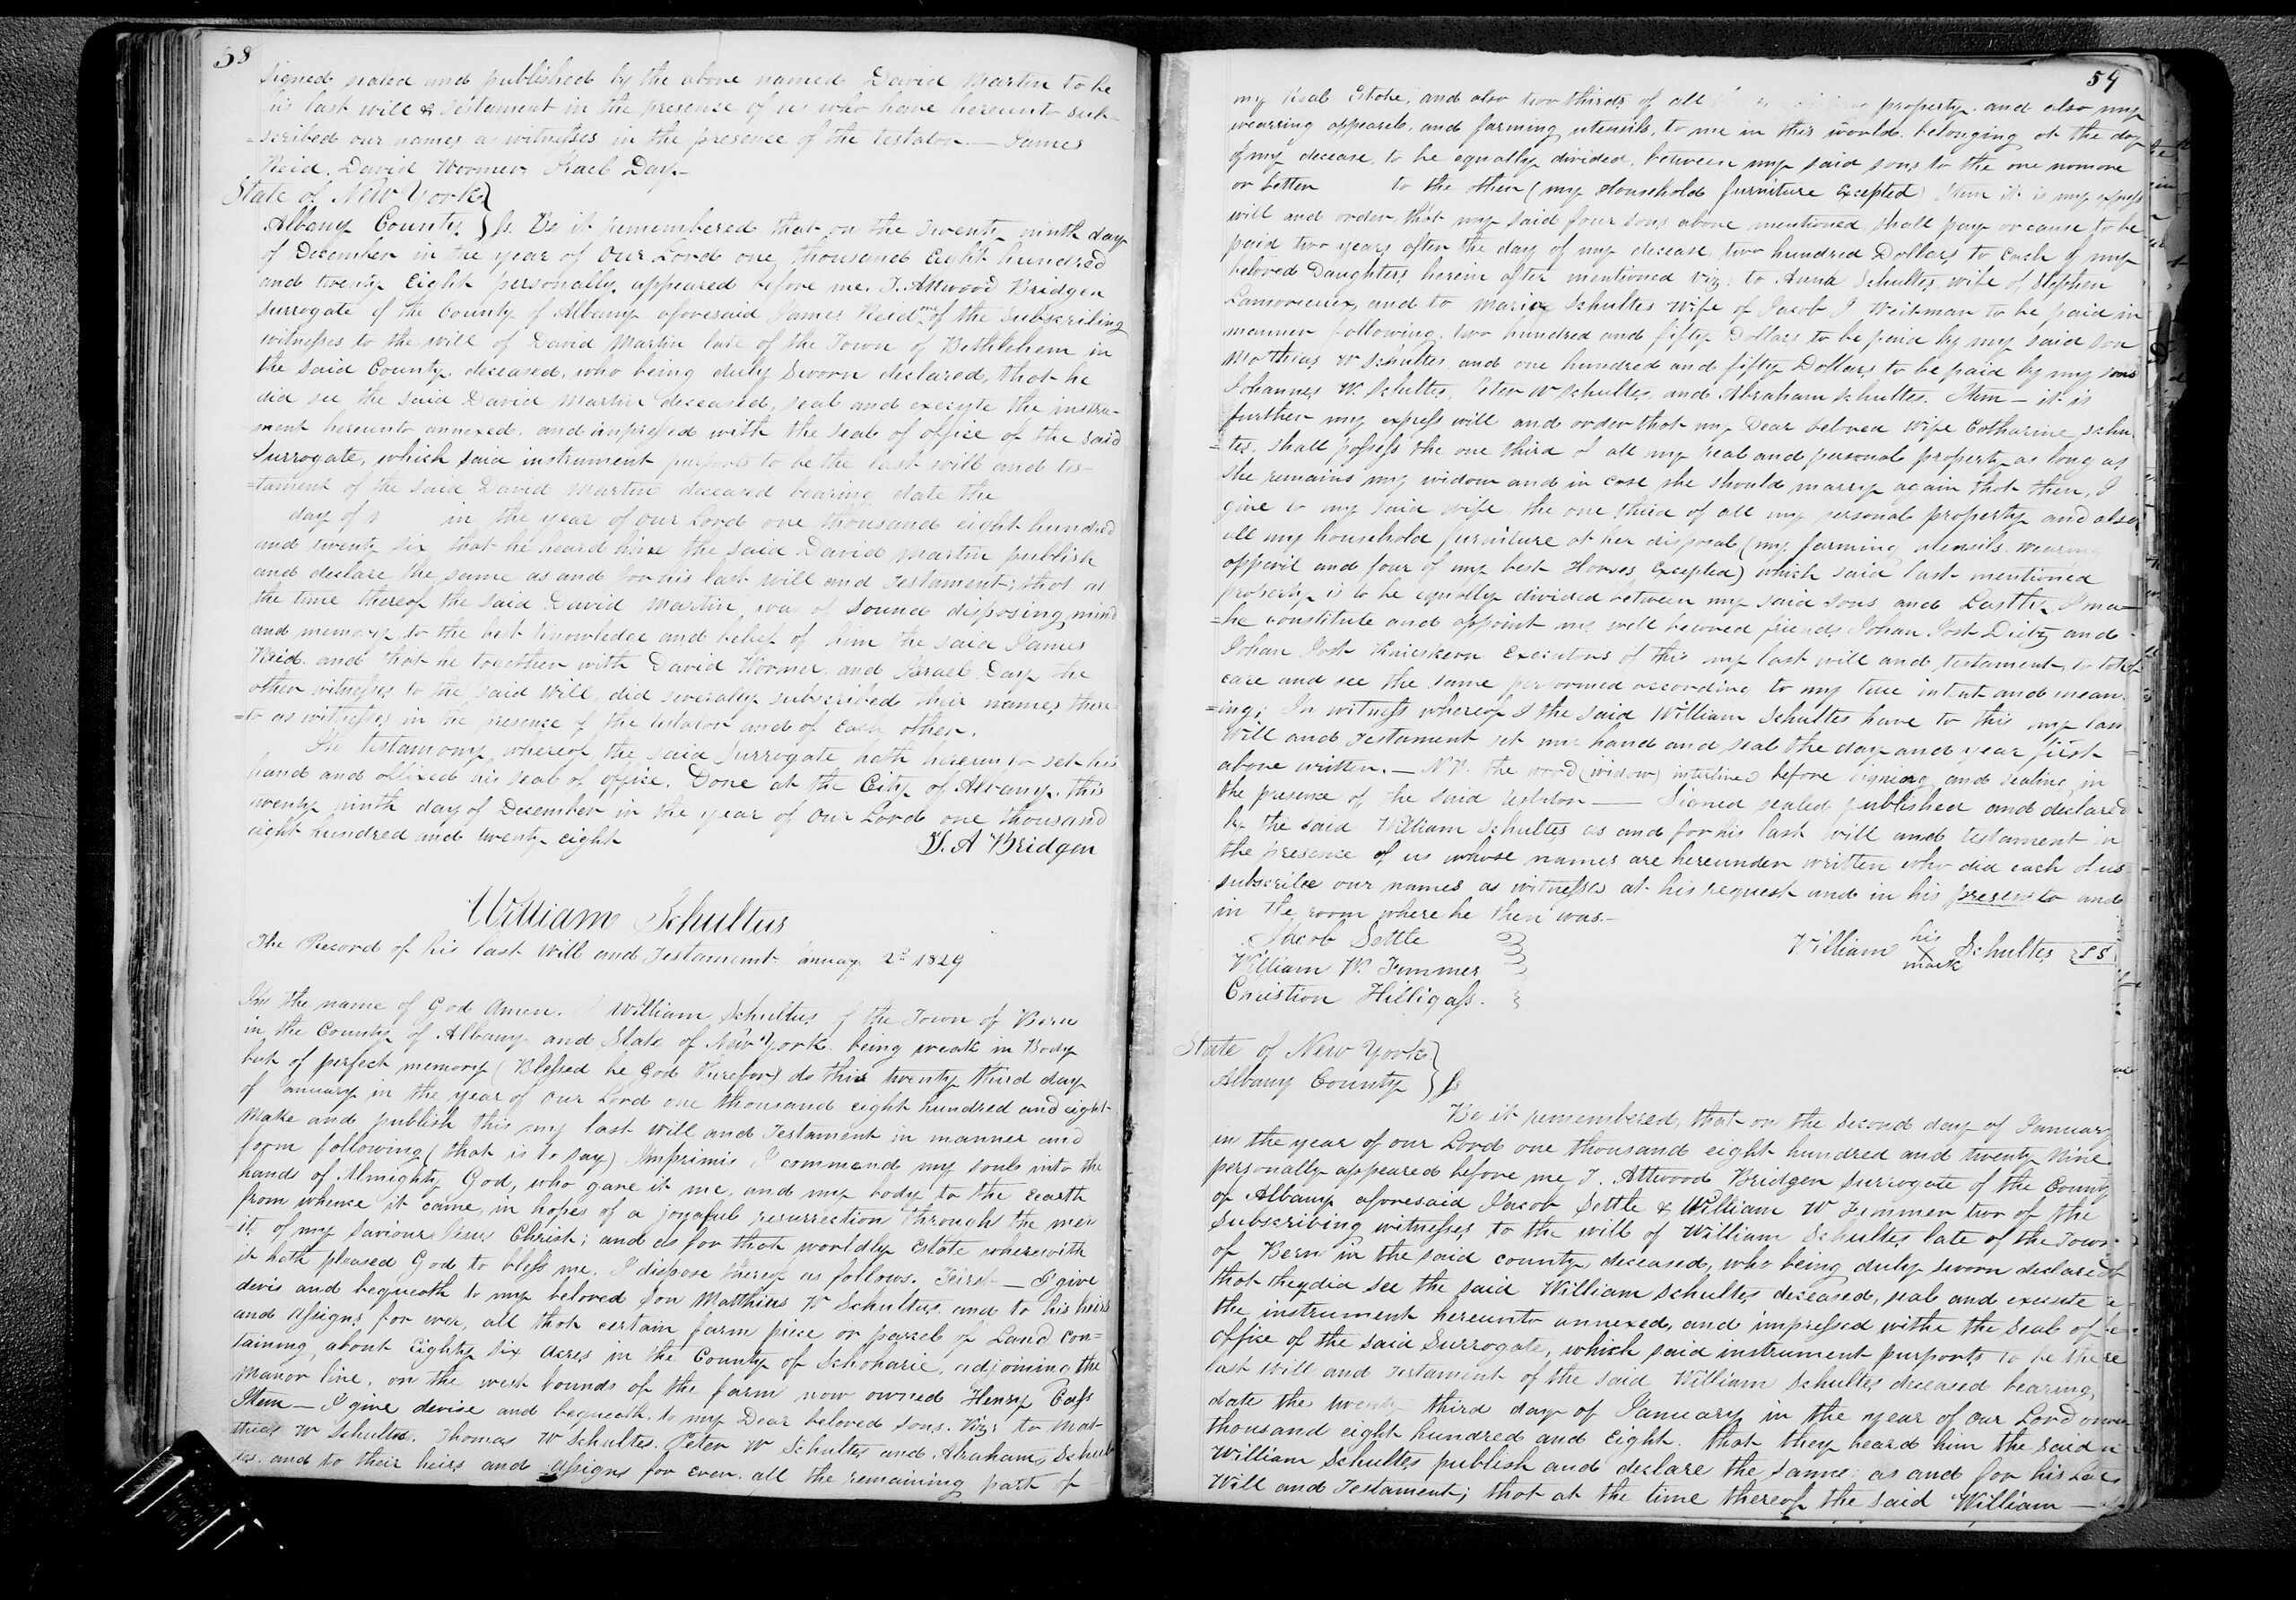 58
Signed sealed and published by the above named David Martin to be
his last will & Testament in the presence of us who have hereunto sub-
=scribed our names as witnesses in the presence of the testator. — James
Reid. David Wormer. Israel Day.
State of New York
Albany County ss. Be it remembered that on the Twenty ninth day
of December in the year of Our Lord one thousand Eight hundred
and twenty Eight personally appeared before me, T. Attwood Bridgen
Surrogate of the County of Albany aforesaid James Reid one of the Subscribing
witnesses to the will of David Martin late of the Town of Bethlehem in
the said County, deceased, who being duly Sworn declared, that he
did see the said David Martin deceased, seal and execute the instru-
ment hereunto annexed, and impressed with the seal of office of the said
Surrogate, which said instrument purports to be the last will and tes-
=tament of the said David Martin deceased bearing date the
day of in the year of our Lord one thousand eight hundred
and twenty six that he heard him the said David Martin publish
and declare the same as and for his last will and Testament; that at
the time thereof the said David Martin was of Sound disposing mind
and memory to the best knowledge and belief of him the said James
Reid. and that he together with David Wormer and Israel Day the
other witnesses to the said will, did severally subscribed their names there
=to as witnesses in the presence of the testator and of Each other.
In testamony whereof the said Surrogate hath hereunto set his
hand and affixed his seal of office. Done at the City of Albany, this
twenty ninth day of December in the year of Our Lord one thousand
eight hundred and twenty eight
T. A Bridgen
William Schultus
The Record of his last Will and Testament January 2d 1829
In the name of God Amen. I William Schultus of the Town of Bern
in the County of Albany and State of New York. being weak in Body
but of perfect memory (Blessed be God therefor) do this twenty third day
of January in the year of Our Lord one thousand eight hundred and eight
Make and publish this my last will and Testament in manner and
form following (that is to say) Imprimis I commend my soul into the
hands of Almighty God, who gave it me, and my body to the Earth
from whence it came, in hopes of a joyaful resurrection through the mer
=it of my Saviour Jesus Christ; and as for that worldly Estate wherewith
it hath pleased God to bless me, I dispose thereof as follows. First — I give
devis and bequeath to my beloved son Matthias W Schultus and to his heirs
and assigns for ever, all that certain farm piece or parcel of Land con=
taining, about Eighty Six Acres in the County of Schoharie, adjoining the
Manor line, on the west bounds of the farm now owned Henry Cass
Item — I give devise and bequeath to my Dear beloved sons. Viz: to Mat-
thias W Schultes. Thomas W Schultes. Peter W Schultes and Abraham Schul
tes. and to their heirs and assigns for Ever. all the remaining part of
59
my Real Estate, and also two thirds of all property, and also my
wearring apparel, and farming utensils, to me in this world, belonging at the day
of my decease, to be equally divided, between my said sons to the one nomore
or better to the other (my Household furniture Excepted) Item it is my express
will and order, that my said four sons above mentioned shall pay or cause to be
paid two years after the day of my decease two hundred Dollars to Each of my
beloved Daughters herein after mentioned Viz: to Anna Schultes wife of Stephen
Lamoreeux, and to Maria Schultes Wife of Jacob J Weitman to be paid in
manner following, two hundred and fifty Dollars to be paid by my said son
Matthias W Schultes and one hundred and fifty Dollars to be paid by my sons
Johannes W. Schultes, Peter W Schultes, and Abraham Schultes. Item — it is
further my express will and order that my Dear beloved Wife Catharine Schul
=tes. shall possess the one third of all my real and personal property as long as
she remains my widow and in case she should marry again that then, I
give to my said wife, the one third of all my personal property and also
all my household furniture at her disposal (my farming utensils. Wearing
apparil and four of my best Horses Excepted) which said last mentioned
property is to be equally divided between my said sons and Lastly, I ma-
=ke constitute and appoint my well beloved friends Johan Jost Dietz and
Johan Jost Knieskern Executors of this my last will and testament, to take
care and see the same performed according to my true intent and mean-
=ing; In witness whereof I the said William Schultes have to this my last
Will and Testament set my hand and seal the day and year first
above written. — N.B. the word (widow) interlined before signing and sealing in
the presence of the said testator — Signed sealed published and declared
by the said William Schultes as and for his last will and testament in
the presence of us whose names are hereunder written who did each of us
subscribe our names as witnesses at his request and in his presence and
in the room where he then was.—
Jacob Settle
William W. Fummer
Christian Hilligass.
William his Schultes LS
mark
State of New York
Albany County ss
Be it remembered, that on the Second day of January
in the year of our Lord one thousand eight hundred and twenty Nine
personally appeared before me T. Attwood Bridgen Surrogate of the County
of Albany aforesaid Jacob Settle & William W Fummer two of the
Subscribing witnesses, to the will of William Schultes late of the Town
of Bern in the said county, deceased, who being duly sworn declared
that they did see the said William Schultes deceased, seal and execute
the instrument hereunto annexed, and impressed withe the Seal of
Office of the said Surrogate, which said instrument purports to be the
last Will and Testament of the said William Schultes deceased bearing,
date the twenty third day of January in the year of our Lord one
thousand eight hundred and Eight. that they heard him the said
William Schultes publish and declare the same as and for his Last
Will and Testament; that at the time thereof the said William —